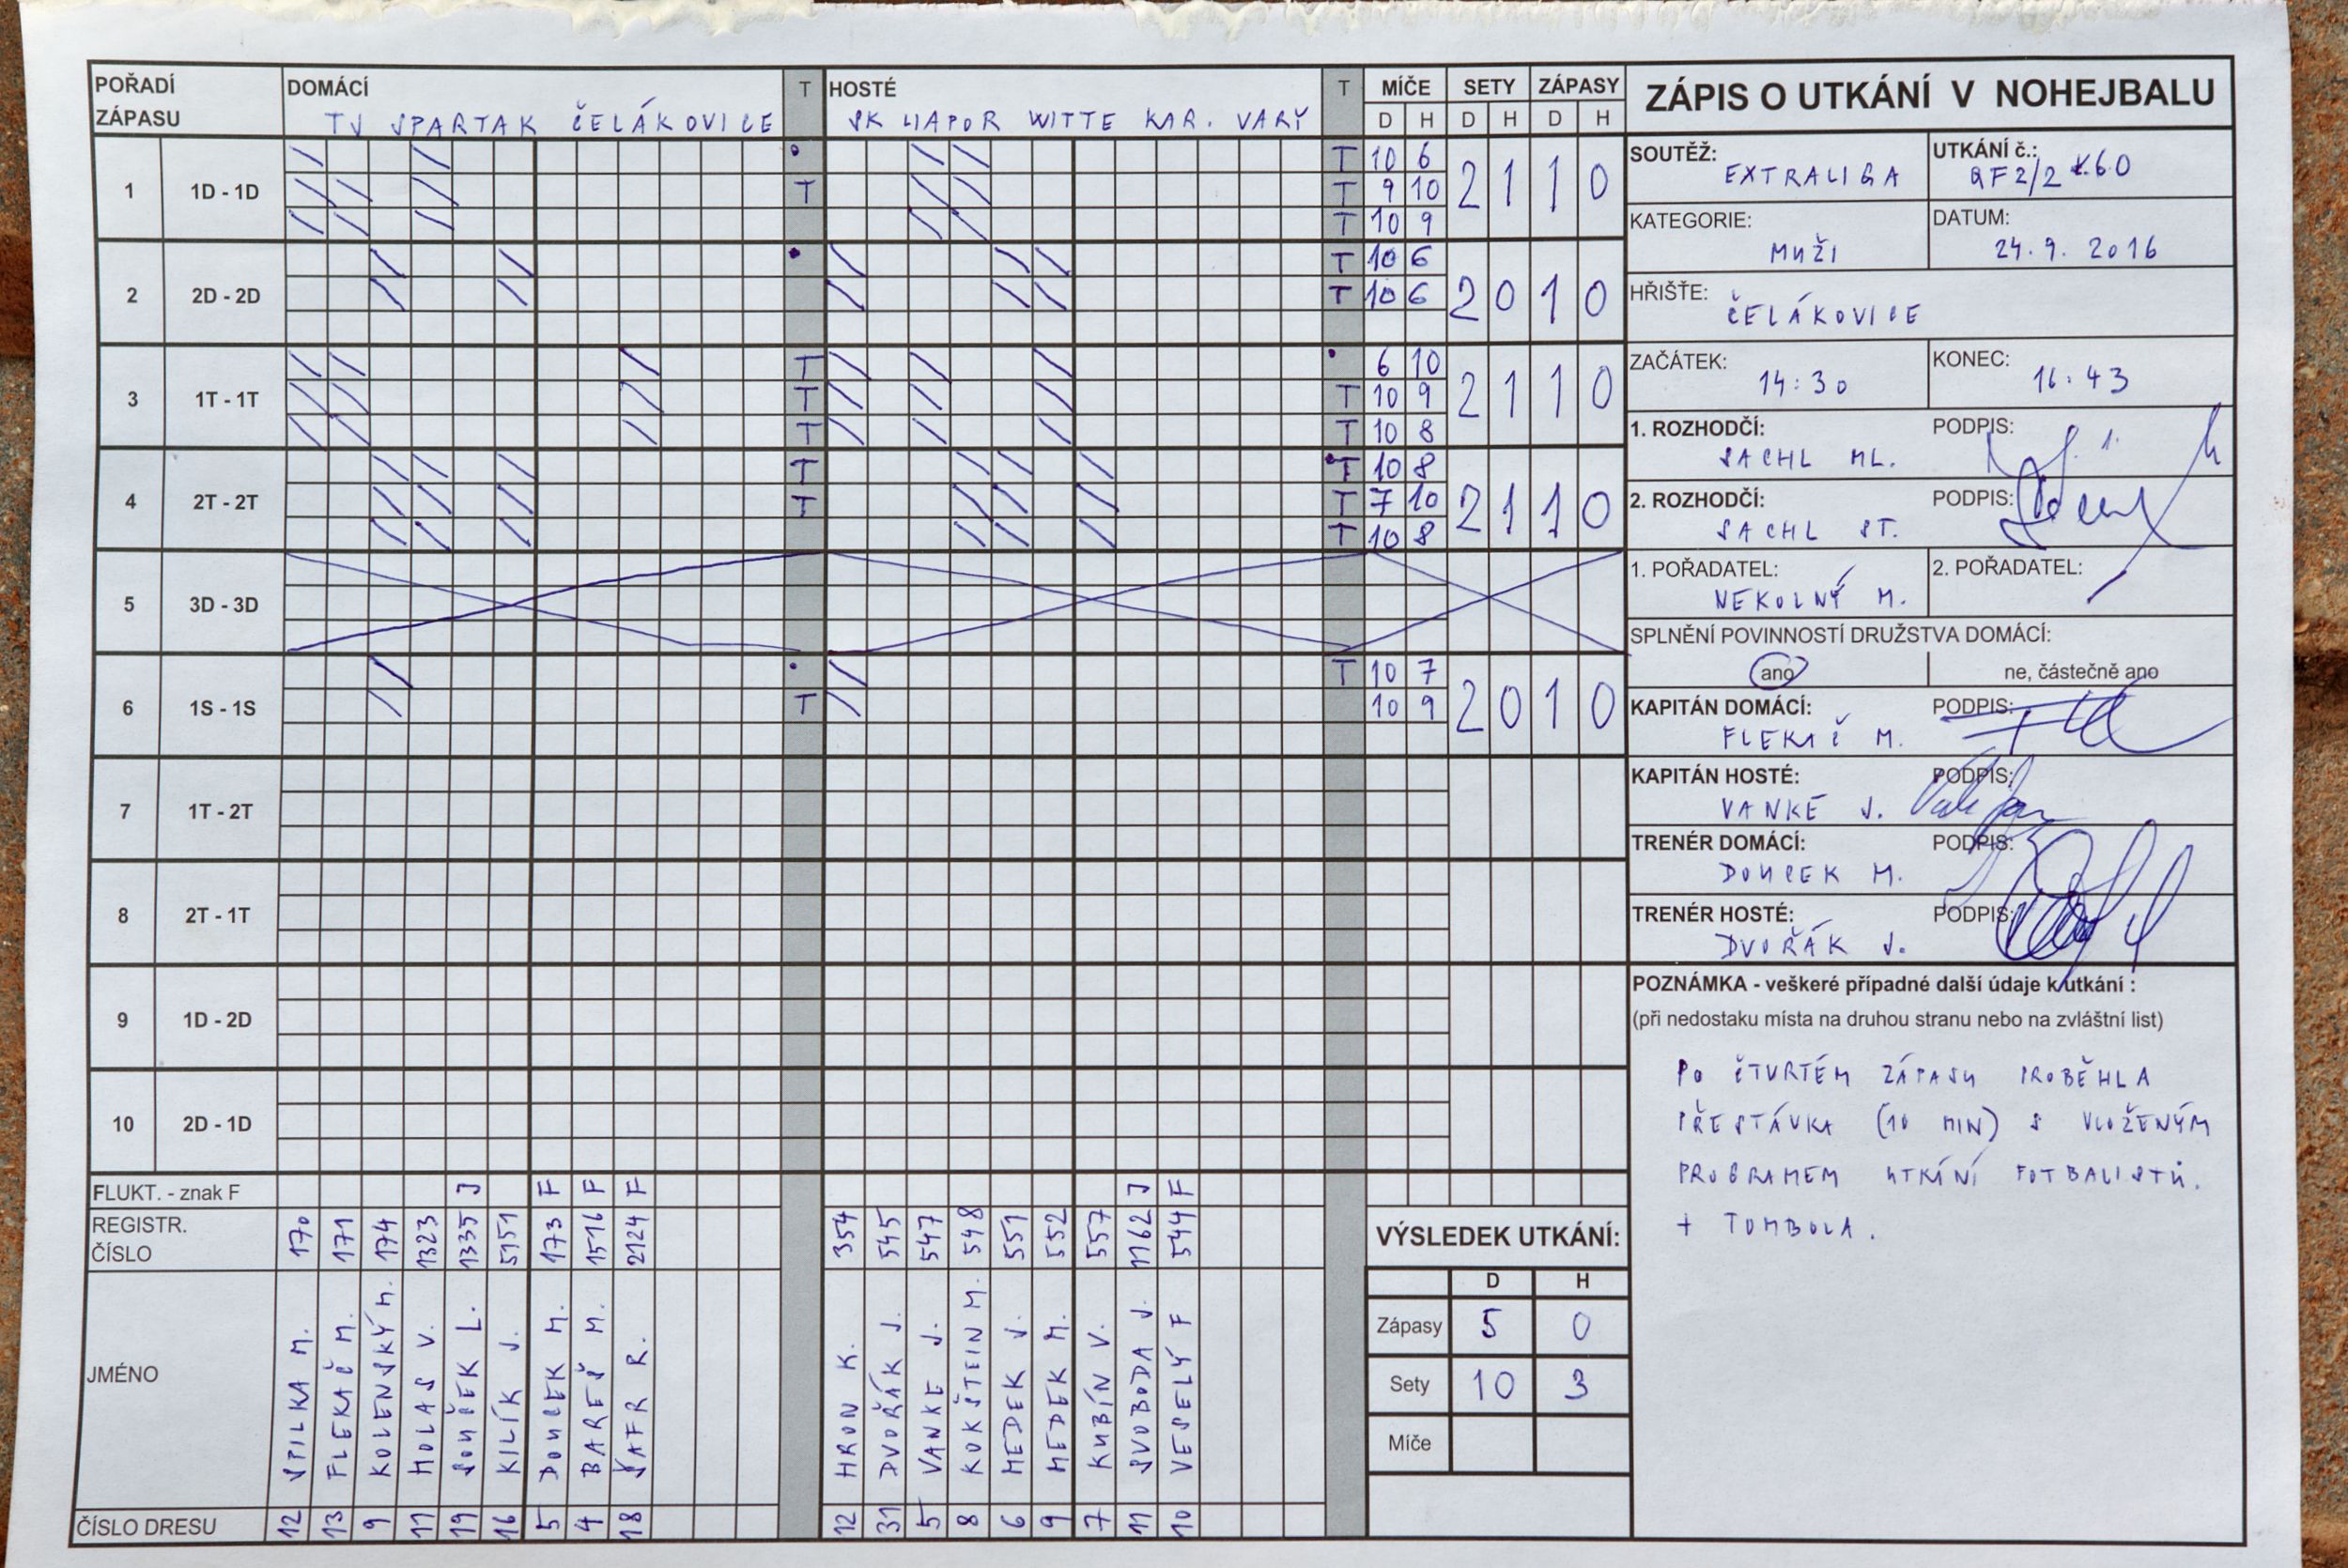 POŘADÍ ZÁPASU DOMÁCÍ T HOSTÉ T MÍČE SETY ZÁPASY
TJ SPARTAK ČELÁKOVICE SK LIAPOR WITTE KAR. VARY D H D H D H
1 1D - 1D T 10 6 2 1 1 0
T T 9 10
T 10 9
2 2D - 2D T 10 6 2 0 1 0
T 10 6
3 1T - 1T T 6 10 2 1 1 0
T T 10 9
T T 10 8
4 2T - 2T T T 10 8 2 1 1 0
T T 7 10
T 10 8
5 3D - 3D
6 1S - 1S T 10 7 2 0 1 0
T 10 9
7 1T - 2T
8 2T - 1T
9 1D - 2D
10 2D - 1D
FLUKT. - znak F J F F F J F
REGISTR. ČÍSLO 170 171 174 1323 1335 5151 173 1516 2124 354 545 547 548 551 552 557 1162 544
JMÉNO SPILKA M. FLEKAČ M. KOLENSKÝ M. HOLAS V. SOUČEK L. KILÍK J. DOUCEK M. BAREŠ M. ŠAFR R. HRON K. DVOŘÁK J. VANKE J. KOKŠTEIN M. MEDEK J. MEDEK M. KUBÍN V. SVOBODA J. VESELÝ F
ČÍSLO DRESU 12 13 9 11 19 16 5 4 18 12 31 5 8 6 9 7 11 10
VÝSLEDEK UTKÁNÍ:
D H
Zápasy 5 0
Sety 10 3
Míče
ZÁPIS O UTKÁNÍ V NOHEJBALU
SOUTĚŽ: EXTRALIGA UTKÁNÍ č.: QF2/2
KATEGORIE: MUŽI DATUM: 24.9. 2016
HŘIŠTĚ: ČELÁKOVICE
ZAČÁTEK: 14:30 KONEC: 16:43
1. ROZHODČÍ: SACHL ML. PODPIS:
2. ROZHODČÍ: SACHL ST. PODPIS:
1. POŘADATEL: NEKOLNÝ M. 2. POŘADATEL:
SPLNĚNÍ POVINNOSTÍ DRUŽSTVA DOMÁCÍ:
ano ne, částečně ano
KAPITÁN DOMÁCÍ: FLEKAČ M. PODPIS:
KAPITÁN HOSTÉ: VANKE J. PODPIS:
TRENÉR DOMÁCÍ: DOUCEK M. PODPIS:
TRENÉR HOSTÉ: DVOŘÁK J. PODPIS:
POZNÁMKA - veškeré případné další údaje k utkání :
(při nedostaku místa na druhou stranu nebo na zvláštní list)
PO ČTVRTÉM ZÁPASU PROBĚHLA
PŘESTÁVKA (10 MIN) S VLOŽENÝM
PROGRAMEM UTKÁNÍ FOTBALISTŮ.
+ TOMBOLA.